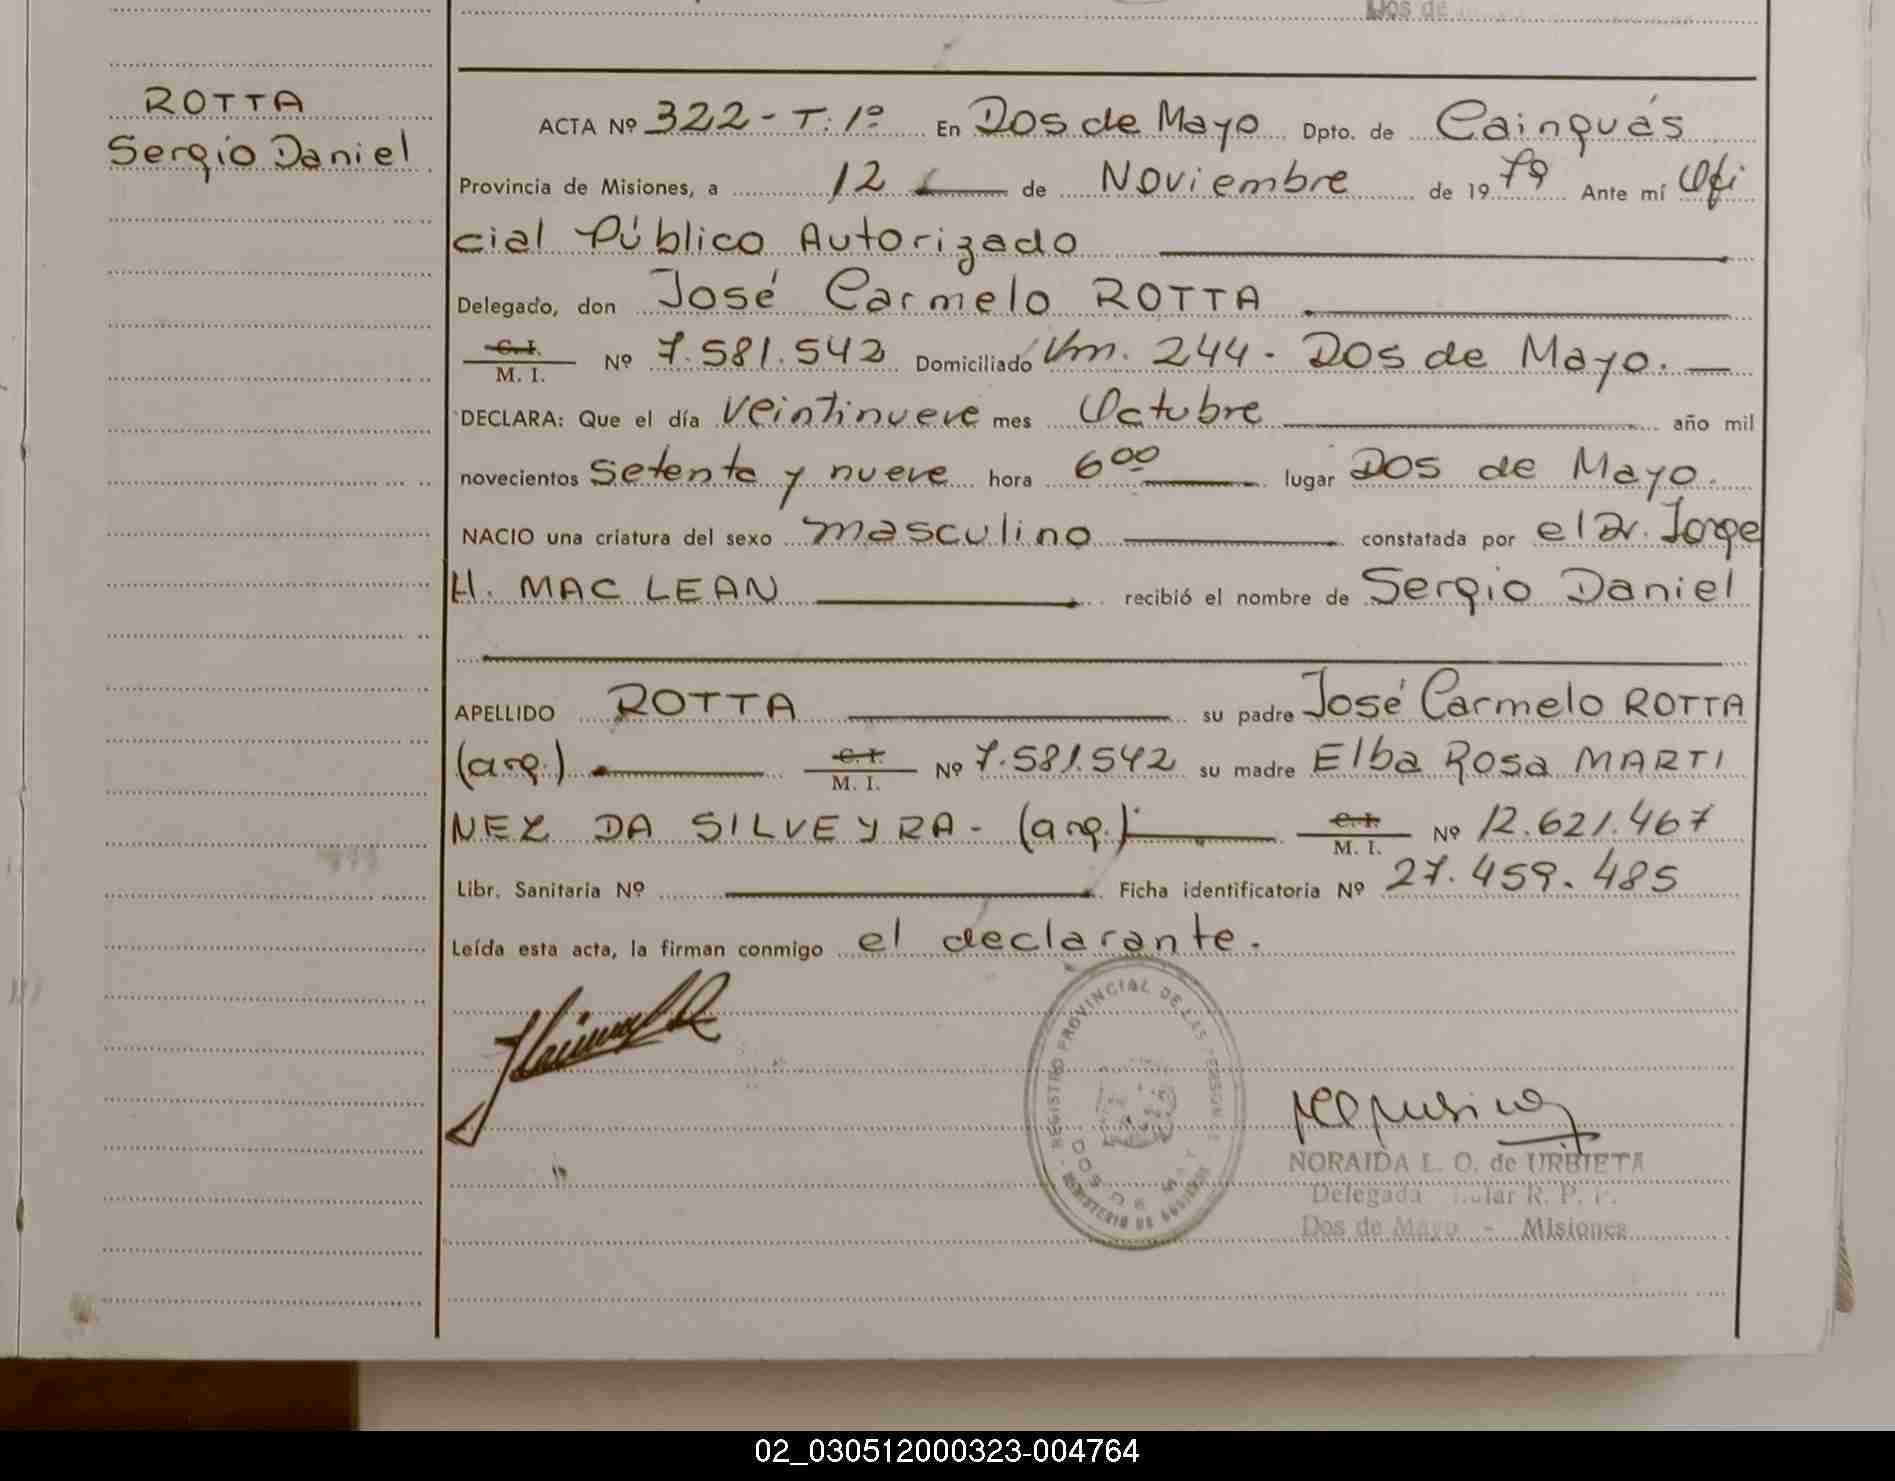 Dos de
ROTTA
Sergio Daniel
ACTA Nº 322 - T: 1º En Dos de Mayo Dpto. de Cainguás
Provincia de Misiones, a 12 de Noviembre de 1979 Ante mí Ofi
cial Público Autorizado
Delegado, don José Carmelo ROTTA
C. I.
M. I. Nº 7.581.542 Domiciliado Km. 244 - Dos de Mayo.
DECLARA: Que el día veintinueve mes Octubre año mil
novecientos setenta y nueve hora 6 00 lugar Dos de Mayo.
NACIO una criatura del sexo masculino constatada por el Dr. Jorge
H. MAC LEAN recibió el nombre de Sergio Daniel
APELLIDO ROTTA su padre José Carmelo ROTTA
(arg.) C. I. M. I. Nº 7.581.542 su madre Elba Rosa MARTI
NEZ DA SILVEYRA - (arg.) C. I. M. I. Nº 12.621.467
Libr. Sanitaria Nº Ficha identificatoria Nº 27.459.485
Leída esta acta, la firman conmigo el declarante.
REGISTRO PROVINCIAL DE LAS PERSONAS
DOS DE MAYO
MINISTERIO DE GOBIERNO
NORAIDA L. O. de URBIETA
Delegada Titular R. P. P.
Dos de Mayo - Misiones
02_030512000323-004764